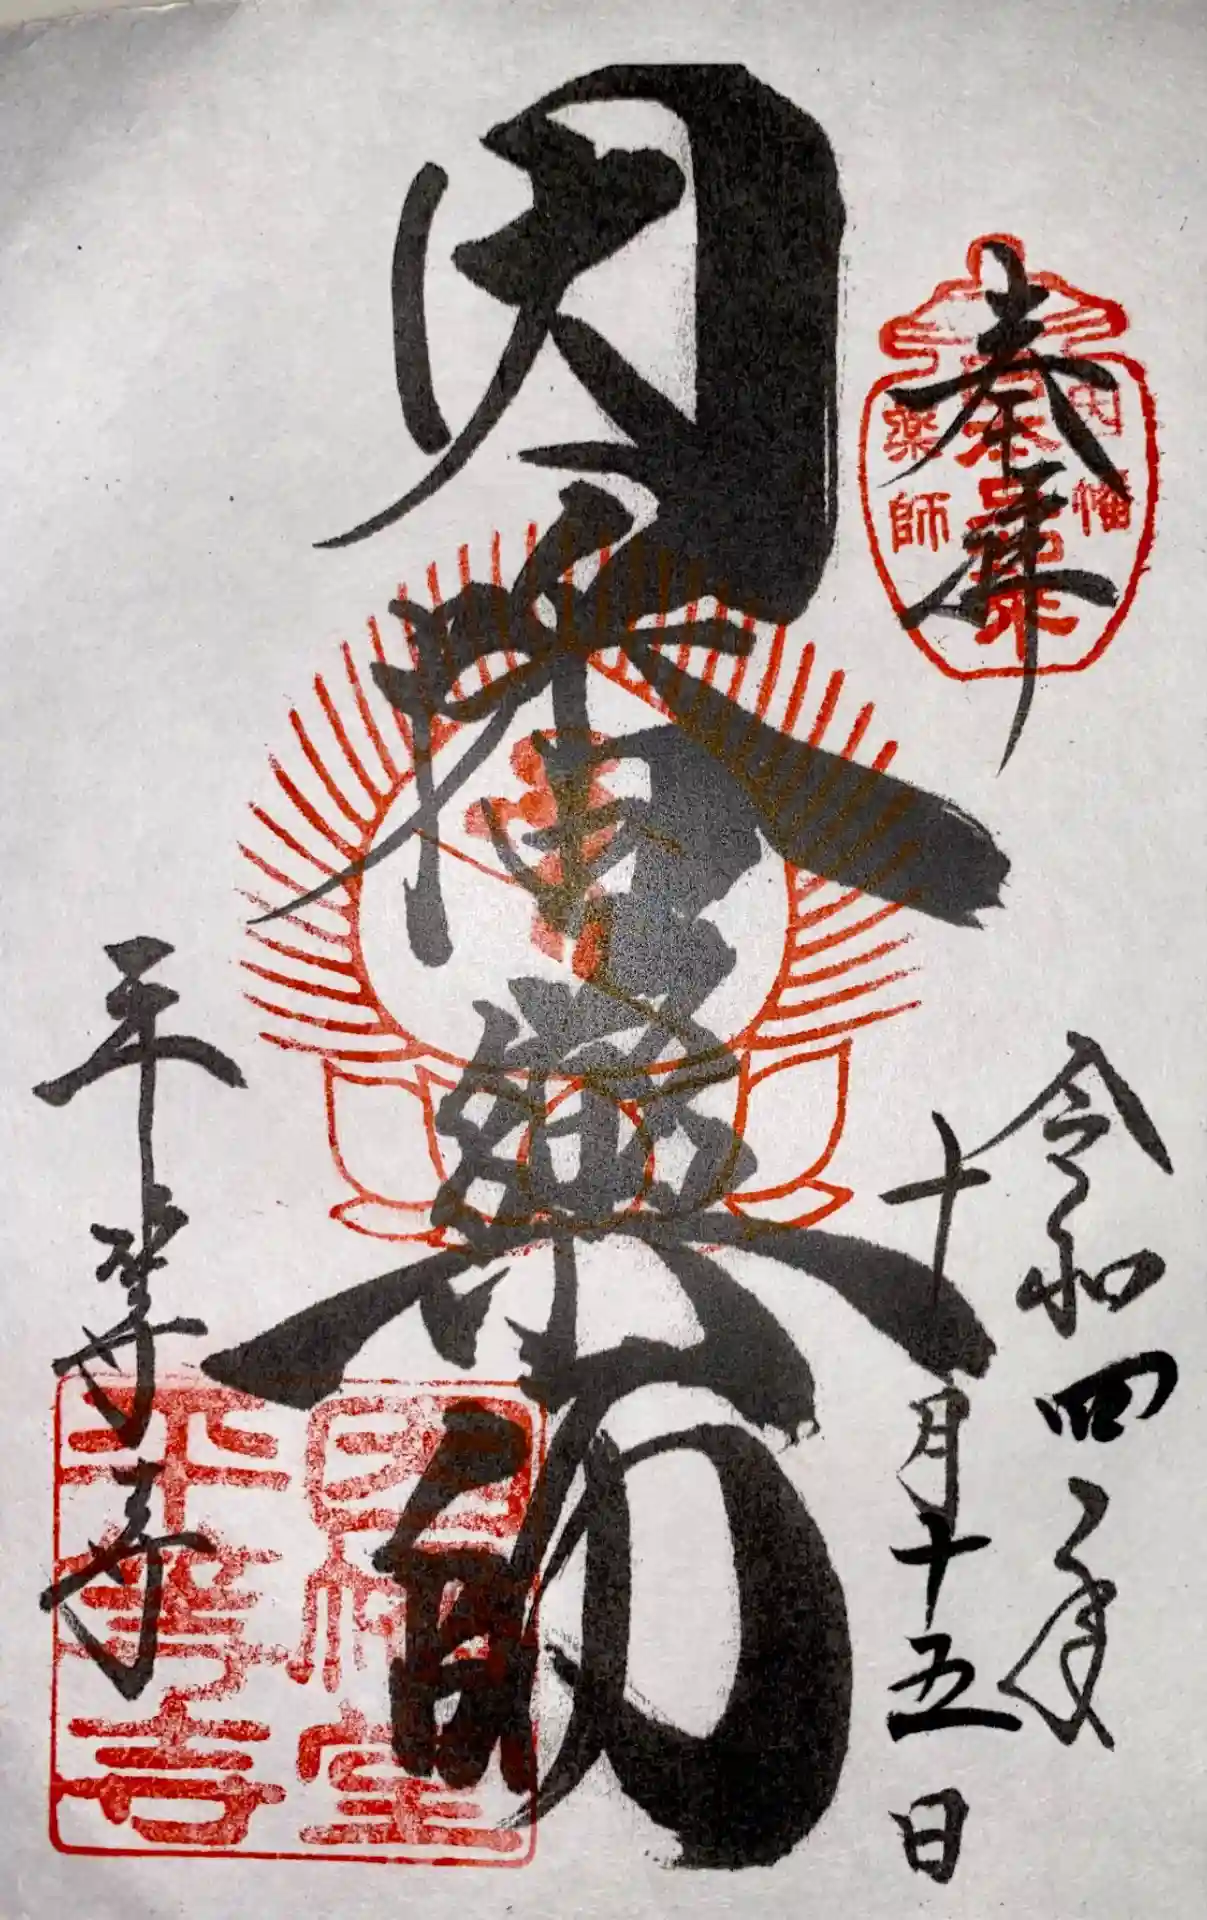 奉拝
因幡
薬師
令和四年
十月十五日
因幡薬師
平等寺
因幡堂
平等寺